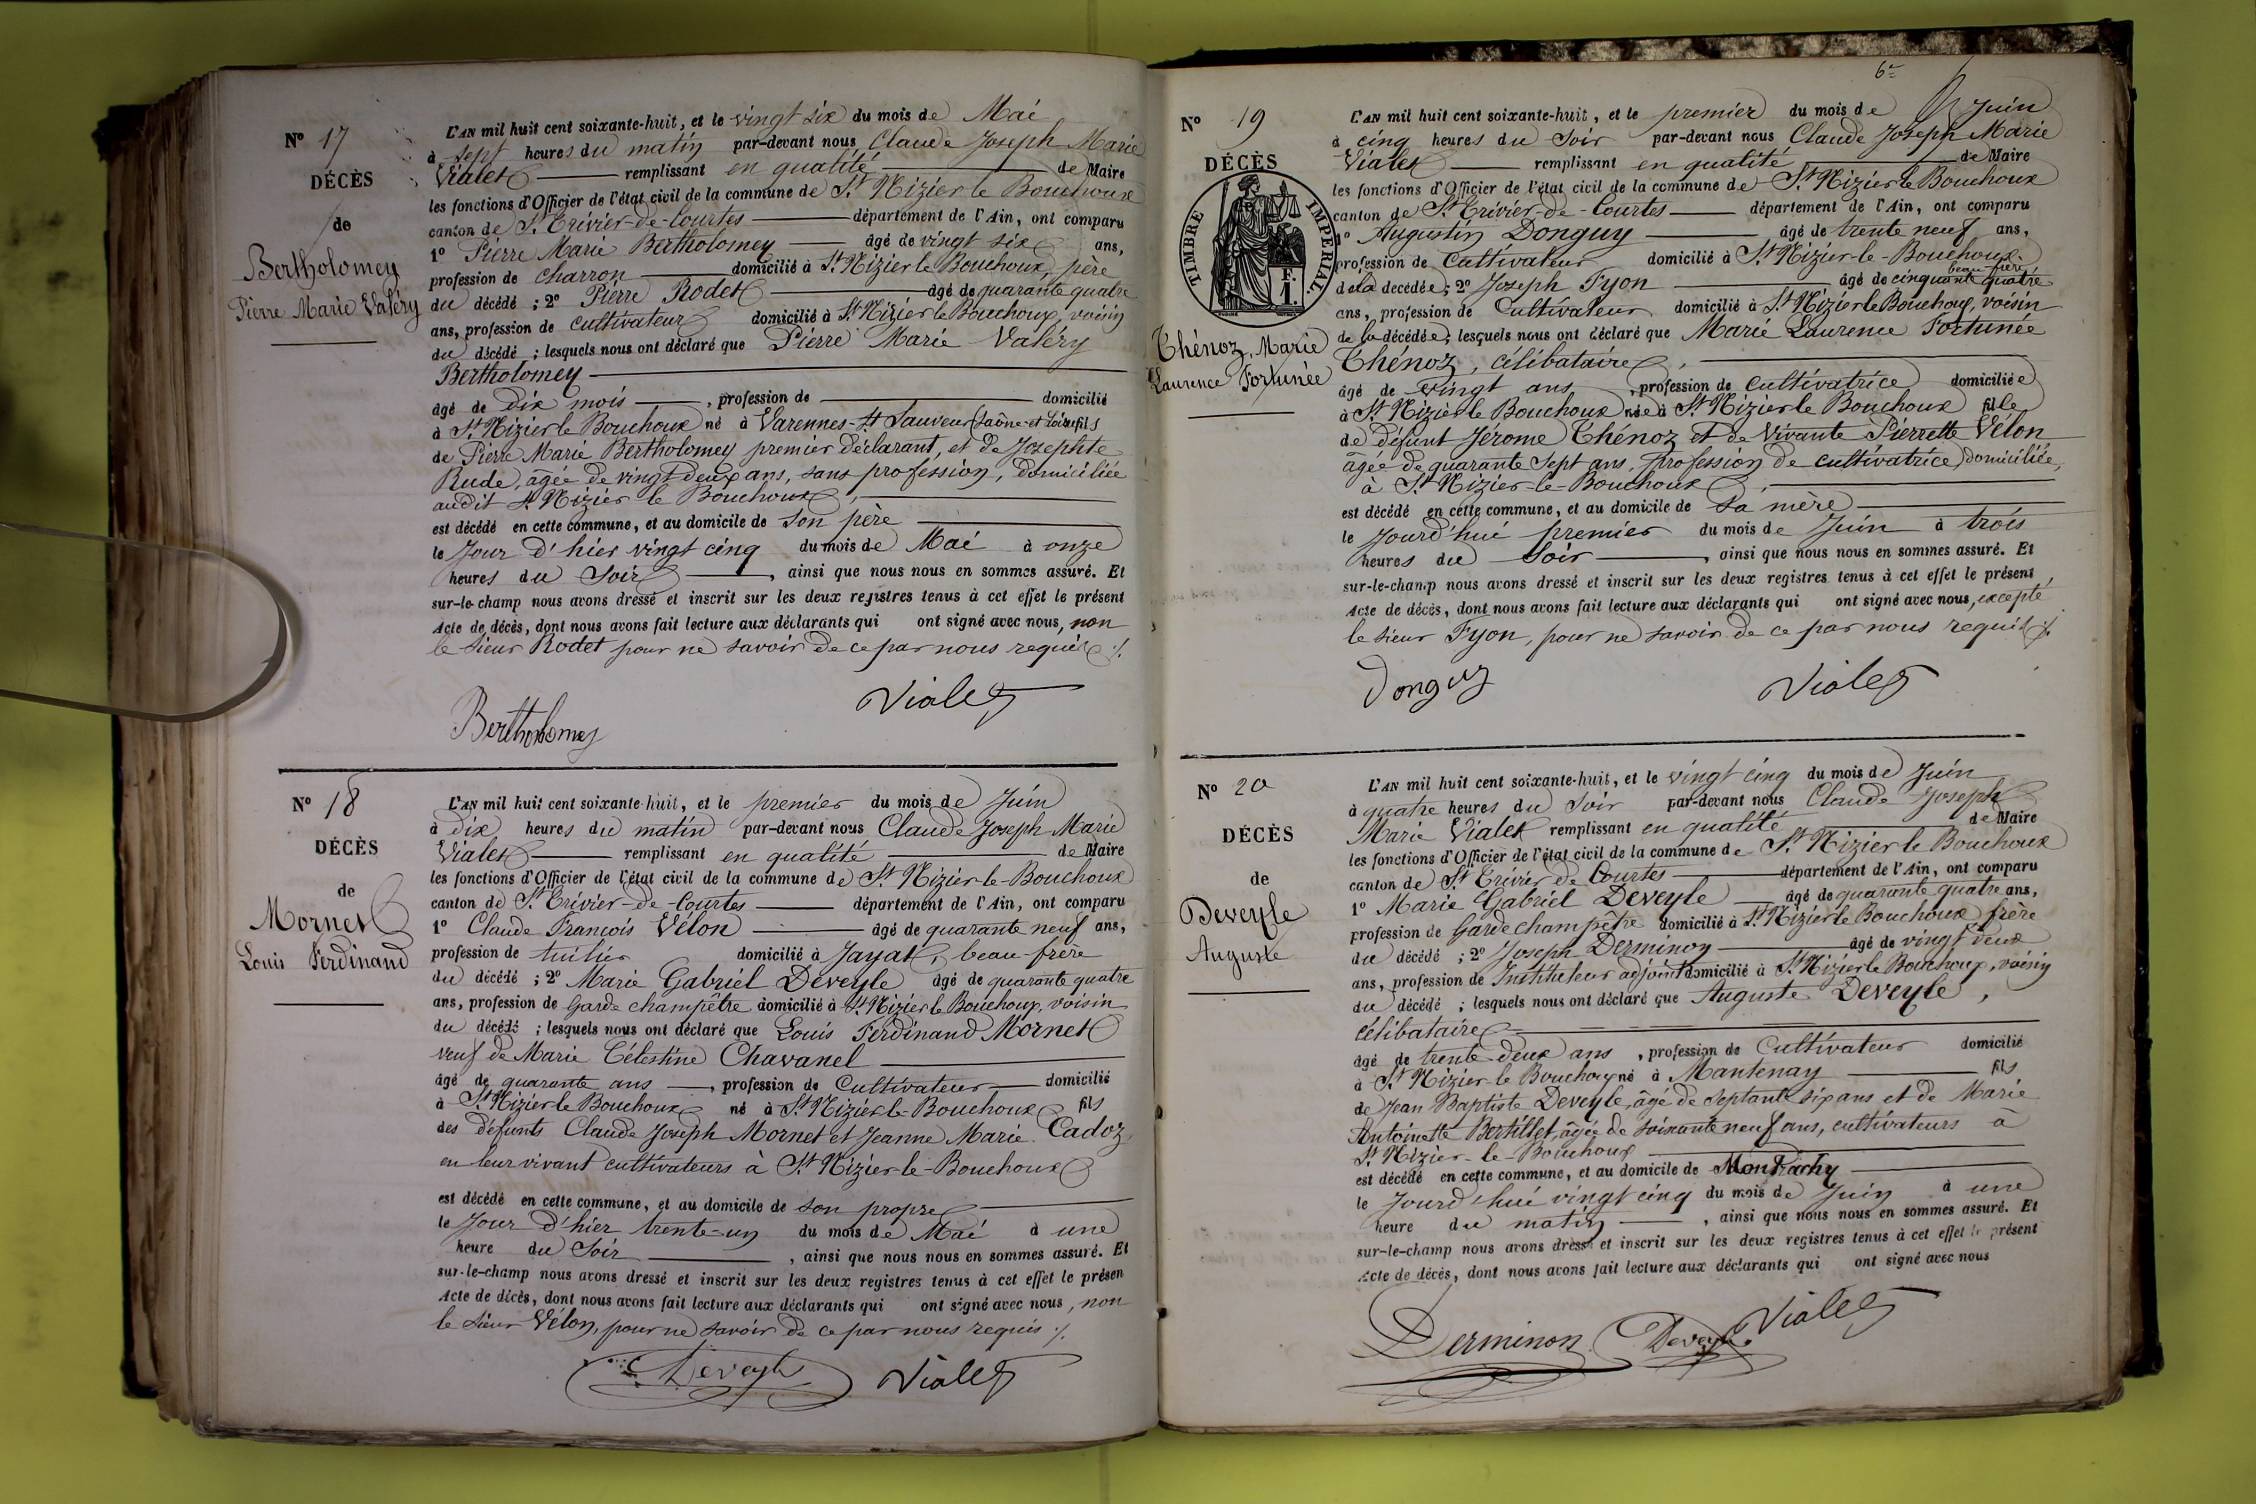 Nº 17
DÉCÈS
de
Bertholomey
Pierre Marie Valéry
L'AN mil huit cent soixante-huit, et le vingt six du mois de Mai
à sept heures du matin par-devant nous Claude Joseph Marie
Vialet remplissant en qualité de Maire
les fonctions d'Officier de l'état civil de la commune de St Nizier le Bouchoux
canton de St Trivier-de-Courtes département de l'Ain, ont comparu
1º Pierre Marie Bertholomey âgé de vingt six ans,
profession de charron domicilié à St Nizier le Bouchoux, père
du décédé ; 2º Pierre Rodet âgé de quarante quatre
ans, profession de cultivateur domicilié à St Nizier le Bouchoux, voisin
du décédé ; lesquels nous ont déclaré que Pierre Marie Valéry
Bertholomey
âgé de dix mois, profession de domicilié
à St Nizier le Bouchoux né à Varennes-St Sauveur (Saône-et-Loire) fils
de Pierre Marie Bertholomey premier déclarant, et de Josephte
Rude, âgée de vingt deux ans, sans profession, domiciliée
audit St Nizier le Bouchoux,
est décédé en cette commune, et au domicile de son père
le jour d'hier vingt cinq du mois de Mai à onze
heures du soir, ainsi que nous nous en sommes assuré. Et
sur-le-champ nous avons dressé et inscrit sur les deux registres tenus à cet effet le présent
Acte de décès, dont nous avons fait lecture aux déclarants qui ont signé avec nous, non
le sieur Rodet pour ne savoir de ce par nous requis ./.
Bertholomey Vialet
Nº 18
DÉCÈS
de
Mornet
Louis Ferdinand
L'AN mil huit cent soixante-huit, et le premier du mois de Juin
à dix heures du matin par-devant nous Claude Joseph Marie
Vialet remplissant en qualité de Maire
les fonctions d'Officier de l'état civil de la commune de St Nizier-le-Bouchoux
canton de St Trivier-de-Courtes département de l'Ain, ont comparu
1º Claude François Vélon âgé de quarante neuf ans,
profession de tuilier domicilié à Jayat, beau-frère
du décédé ; 2º Marie Gabriel Deveyle âgé de quarante quatre
ans, profession de Garde champêtre domicilié à St Nizier le Bouchoux, voisin
du décédé ; lesquels nous ont déclaré que Louis Ferdinand Mornet
veuf de Marie Célestine Chavanel
âgé de quarante ans, profession de Cultivateur domicilié
à St Nizier le Bouchoux né à St Nizier-le-Bouchoux fils
des défunts Claude Joseph Mornet et Jeanne Marie Cadoz
en leur vivant cultivateurs à St Nizier-le-Bouchoux
est décédé en cette commune, et au domicile de son propre
le jour d'hier trente-un du mois de Mai à une
heure du soir, ainsi que nous nous en sommes assuré. Et
sur-le-champ nous avons dressé et inscrit sur les deux registres tenus à cet effet le présen
Acte de décès, dont nous avons fait lecture aux déclarants qui ont signé avec nous, non
le sieur Vélon, pour ne savoir de ce par nous requis ./.
Deveyle Vialet
6e
Nº 19
DÉCÈS
TIMBRE IMPERIAL
F.
1.
Thénoz, Marie
Laurence Fortunée
L'AN mil huit cent soixante-huit, et le premier du mois de Juin
à cinq heures du soir par-devant nous Claude Joseph Marie
Vialet remplissant en qualité de Maire
les fonctions d'Officier de l'état civil de la commune de St Nizier le Bouchoux
canton de St Trivier-de-Courtes département de l'Ain, ont comparu
1º Augustin Donguy âgé de trente neuf ans,
profession de Cultivateur domicilié à St Nizier-le-Bouchoux,
beau frère
de la decédée ; 2º Joseph Fyon âgé de cinquante quatre
ans, profession de Cultivateur domicilié à St Nizier le Bouchoux, voisin
de la décédée ; lesquels nous ont déclaré que Marie Laurence Fortunée
Thénoz, célibataire,
âgé de vingt ans, profession de cultivatrice domiciliée
à St Nizier le Bouchoux née à St Nizier le Bouchoux fille
de défunt Jérome Thénoz et de Vivante Pierrette Vélon
âgée de quarante sept ans, profession de cultivatrice, domiciliée,
à St Nizier-le-Bouchoux,
est décédé en cette commune, et au domicile de sa mère
le jourd'hui premier du mois de Juin à trois
heures du soir, ainsi que nous nous en sommes assuré. Et
sur-le-champ nous avons dressé et inscrit sur les deux registres tenus à cet effet le présent
Acte de décès, dont nous avons fait lecture aux déclarants qui ont signé avec nous, excepté
le sieur Fyon, pour ne savoir de ce par nous requis ./.
Donguy Vialet
Nº 20
DÉCÈS
de
Deveyle
Auguste
L'AN mil huit cent soixante-huit, et le vingt cinq du mois de Juin
à quatre heures du soir par-devant nous Claude Joseph
Marie Vialet remplissant en qualité de Maire
les fonctions d'Officier de l'état civil de la commune de St Nizier le Bouchoux
canton de St Trivier de Courtes département de l'Ain, ont comparu
1º Marie Gabriel Deveyle âgé de quarante quatre ans,
profession de Garde champêtre domicilié à St Nizier le Bouchoux frère
du décédé ; 2º Joseph Derminon âgé de vingt deux
ans, profession de Instituteur adjoint domicilié à St Nizier le Bouchoux, voisin
du décédé ; lesquels nous ont déclaré que Auguste Deveyle,
célibataire
âgé de trente deux ans, profession de Cultivateur domicilié
à St Nizier-le Bouchoux né à Mantenay fils
de Jean Baptiste Deveyle, âgé de septante six ans et de Marie
Antoinette Bertillet, âgée de soixante neuf ans, cultivateurs à
St Nizier-le-Bouchoux
est décédé en cette commune, et au domicile de
le jourd'hui vingt cinq du mois de Juin à une
heure du matin, ainsi que nous nous en sommes assuré. Et
sur-le-champ nous avons dressé et inscrit sur les deux registres tenus à cet effet le présent
Acte de décès, dont nous avons fait lecture aux déclarants qui ont signé avec nous
Derminon Deveyle Vialet